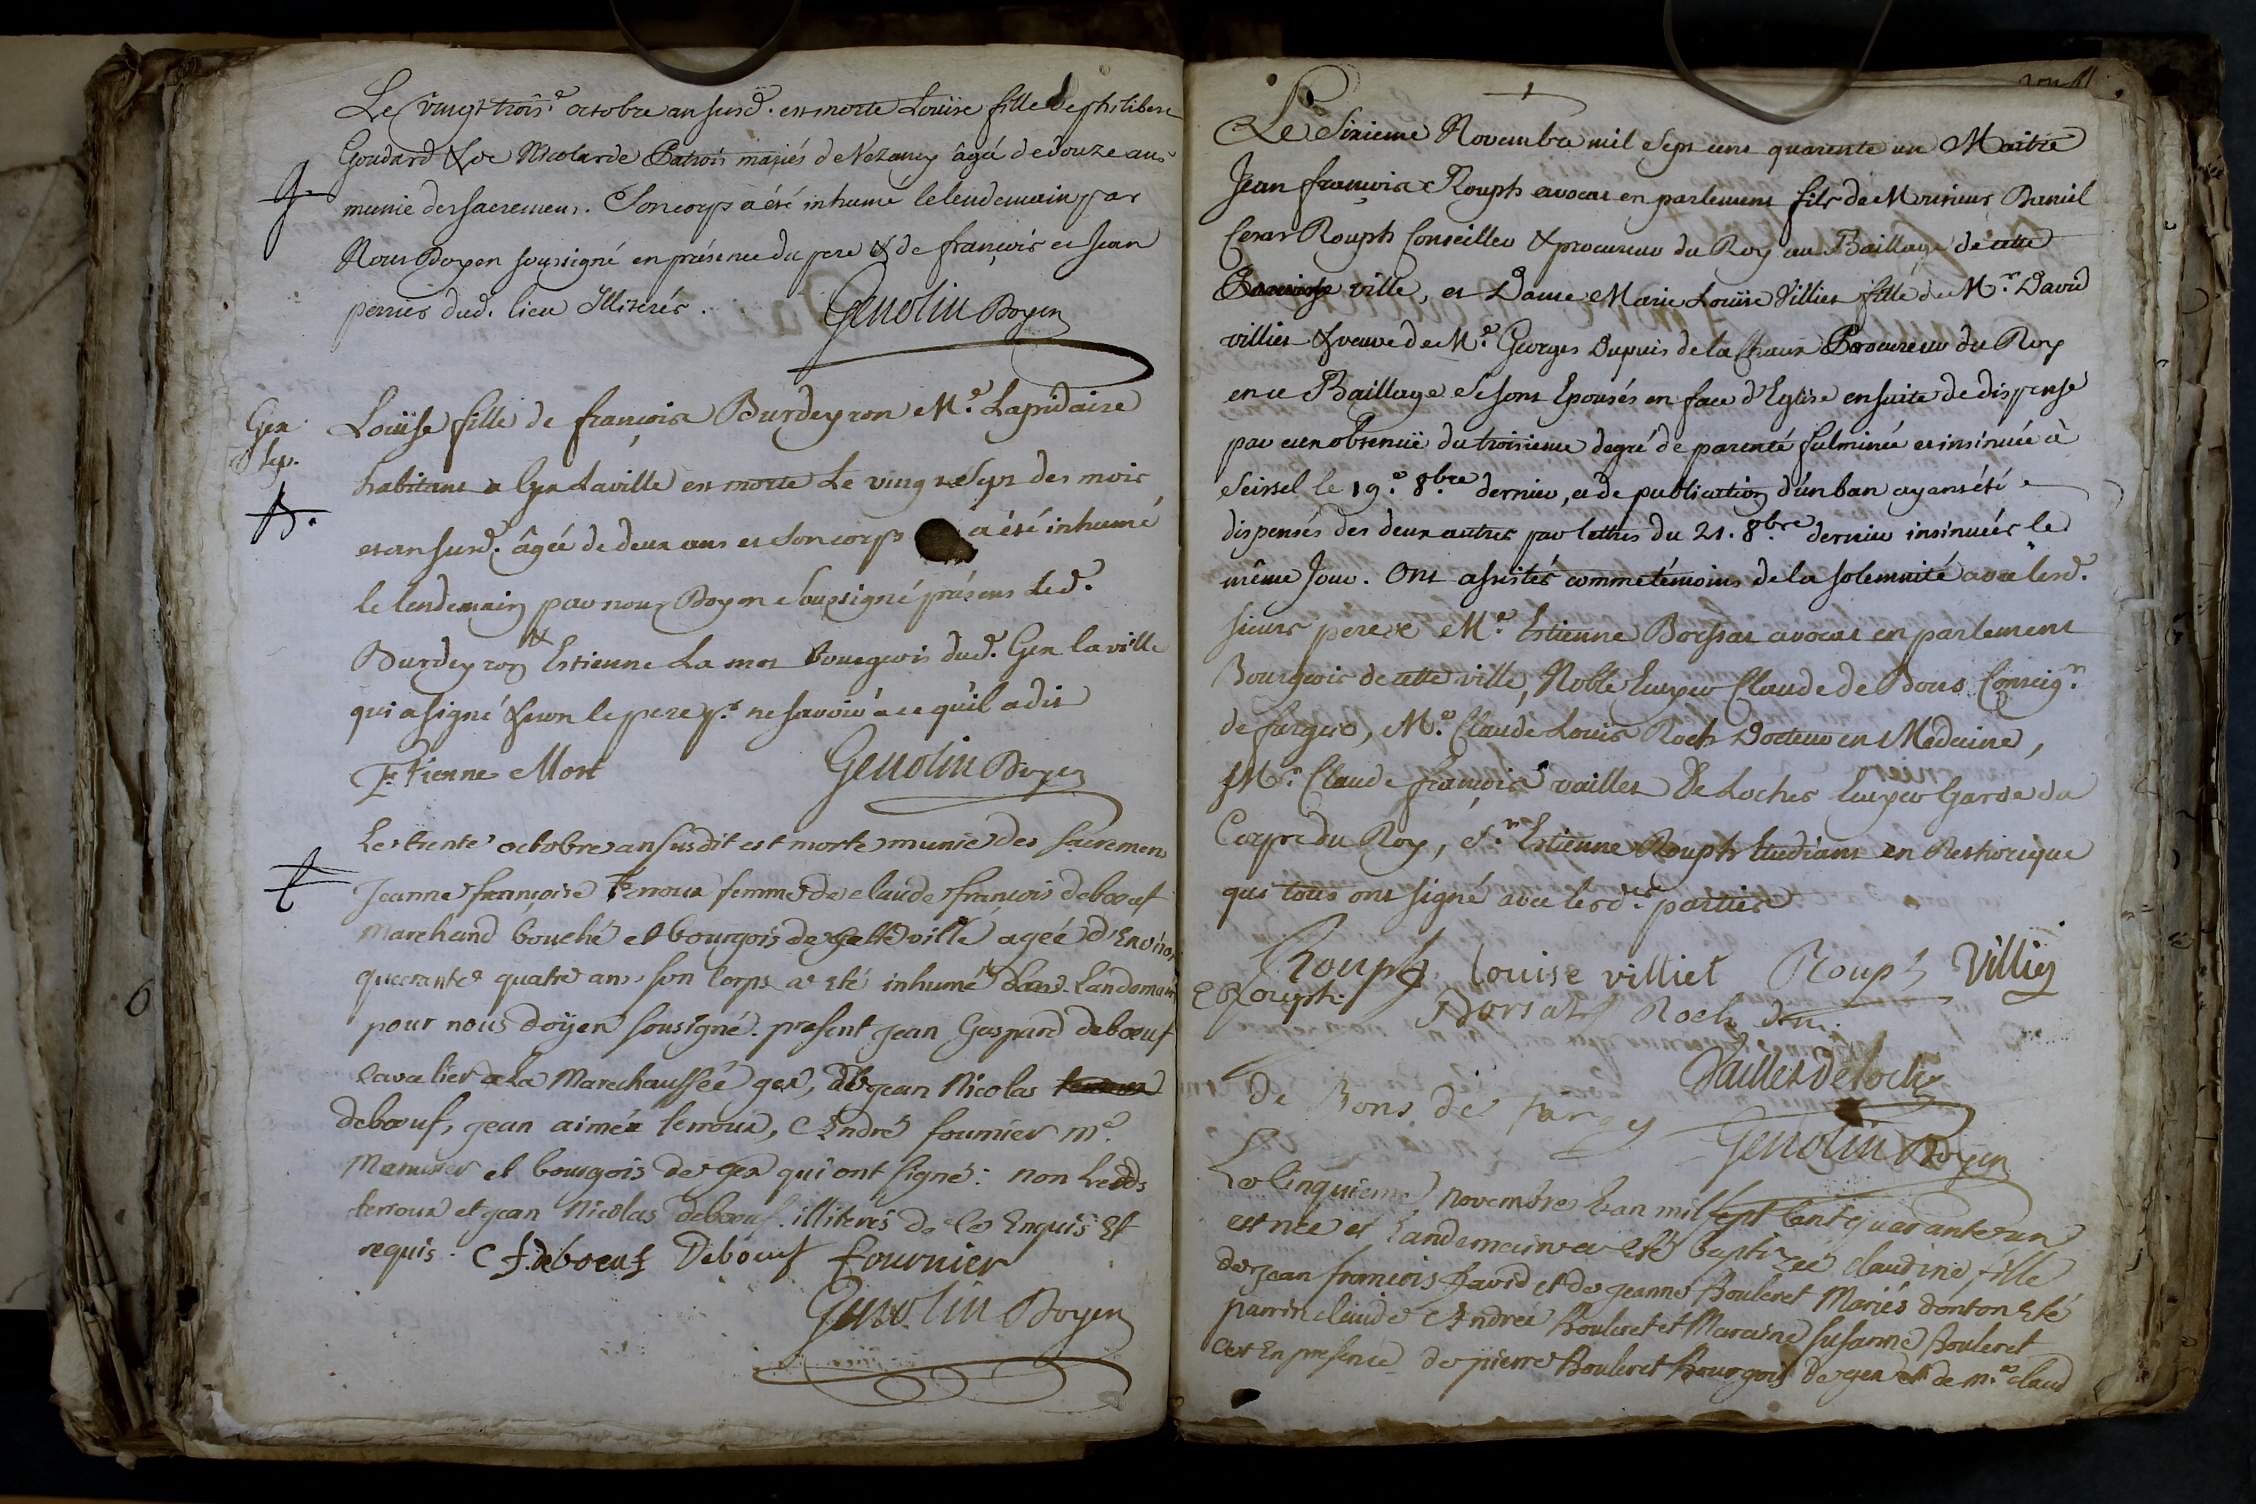 Le vingt trois.e octobre an susd. est morte Louise fille de philibert
Goudard & de Nicolarde Patrois mariés de Vezancy âgée de douze ans
munie des sacremens. Son corps a été inhumé le lendemain par
Nous Doyen soussigné en présence du pere & de françois et Jean
perrier dud. lieu Illiterés.
Genolin Doyen
Gex
Louise fille de françois Burdeyron M.e Lapidaire
habitant a Gex La ville est morte Le vingt Sept des mois
et an susd. âgée de deux ans et son corps a été inhumé
le lendemain par nous Doyen soussigné présens led.
Burdeyron & Estienne La mor bourgeois dud. Gex la ville
qui a signé & non le pere p.r ne savoir a ce qu'il a dit
Etienne Mort Genolin Doyen
Le trente octobre an susdit est morte munie des sacremens
Jeanne françoise terroux femme de claude françois deboeuf
marchand bouché et bourgois de cette ville ageé d'Environ
quarante quatre ans son Corps a eté inhumé Landemain
pour nous doÿen sousigné. present jean Gaspard deboeuf
Cavalier a La Marechaussée gex, de jean Nicolas
deboeuf, jean aimée terroux, Andre fournier m.e
Menusier et bourgois de gex qui ont signé: non Lesds
terroux et jean Nicolas deboeuf illiterés de ce Enquis Et
requis. C f. deboeuf Deboeuf fournier
Genolin Doyen
Le Sixieme Novembre mil sept cent quarente un Maitre
Jean françois Rouph avocat en parlement fils de Monsieur Daniel
Cesar Rouph Conseiller & procureur du Roy au Baillage de cette
ville, et Dame Marie Louise Villiet fille de M.r David
villiet & veuve de M.e Georges Dupuis de la Chaux Procureur du Roy
en ce Baillage se sont Epousés en face d'Eglise ensuite de dispense
par eux obtenüe du troisieme degré de parenté fulminée et insinuée à
Seissel le 19.e 8.bre dernier, et de publication d'un ban ayans été
dispensés des deux autres par lettres du 21. 8.bre dernier insinuées le
même Jour. Ont assistés comme témoins de la solemnité avec lesd.
sieurs peres M.e Estienne Borssat avocat en parlement
Bourgeois de cette ville, Noble Claude de Bons Conseig.r
de fargeo, M.e Claude Louis Roch Docteur en Medecine,
M.r Claude françois vaillet De Loches Garde du
Corps du Roy, S.r Estienne Rouph Etudiant en Rethorique
qui tous ont signé avec lesd. parties
Rouph Louise villiet Rouph Villiet
E Rouph. Borsat Roch d.m.
Vaillet De loche
de Bons de fargey
Genolin Doyen
Le Cinquieme novembre Lan mil sept Cent quarante un
est nee et Landemain a Eté baptizée claudine fille
de jean françois favid et de jeanne Bouleret Mariés dont on Eté
parrin claude Andrée Bouleret et Maraine Susanne Bouleret
Cet En presence de pierre Bouleret bourgois de gex et de m.e claud